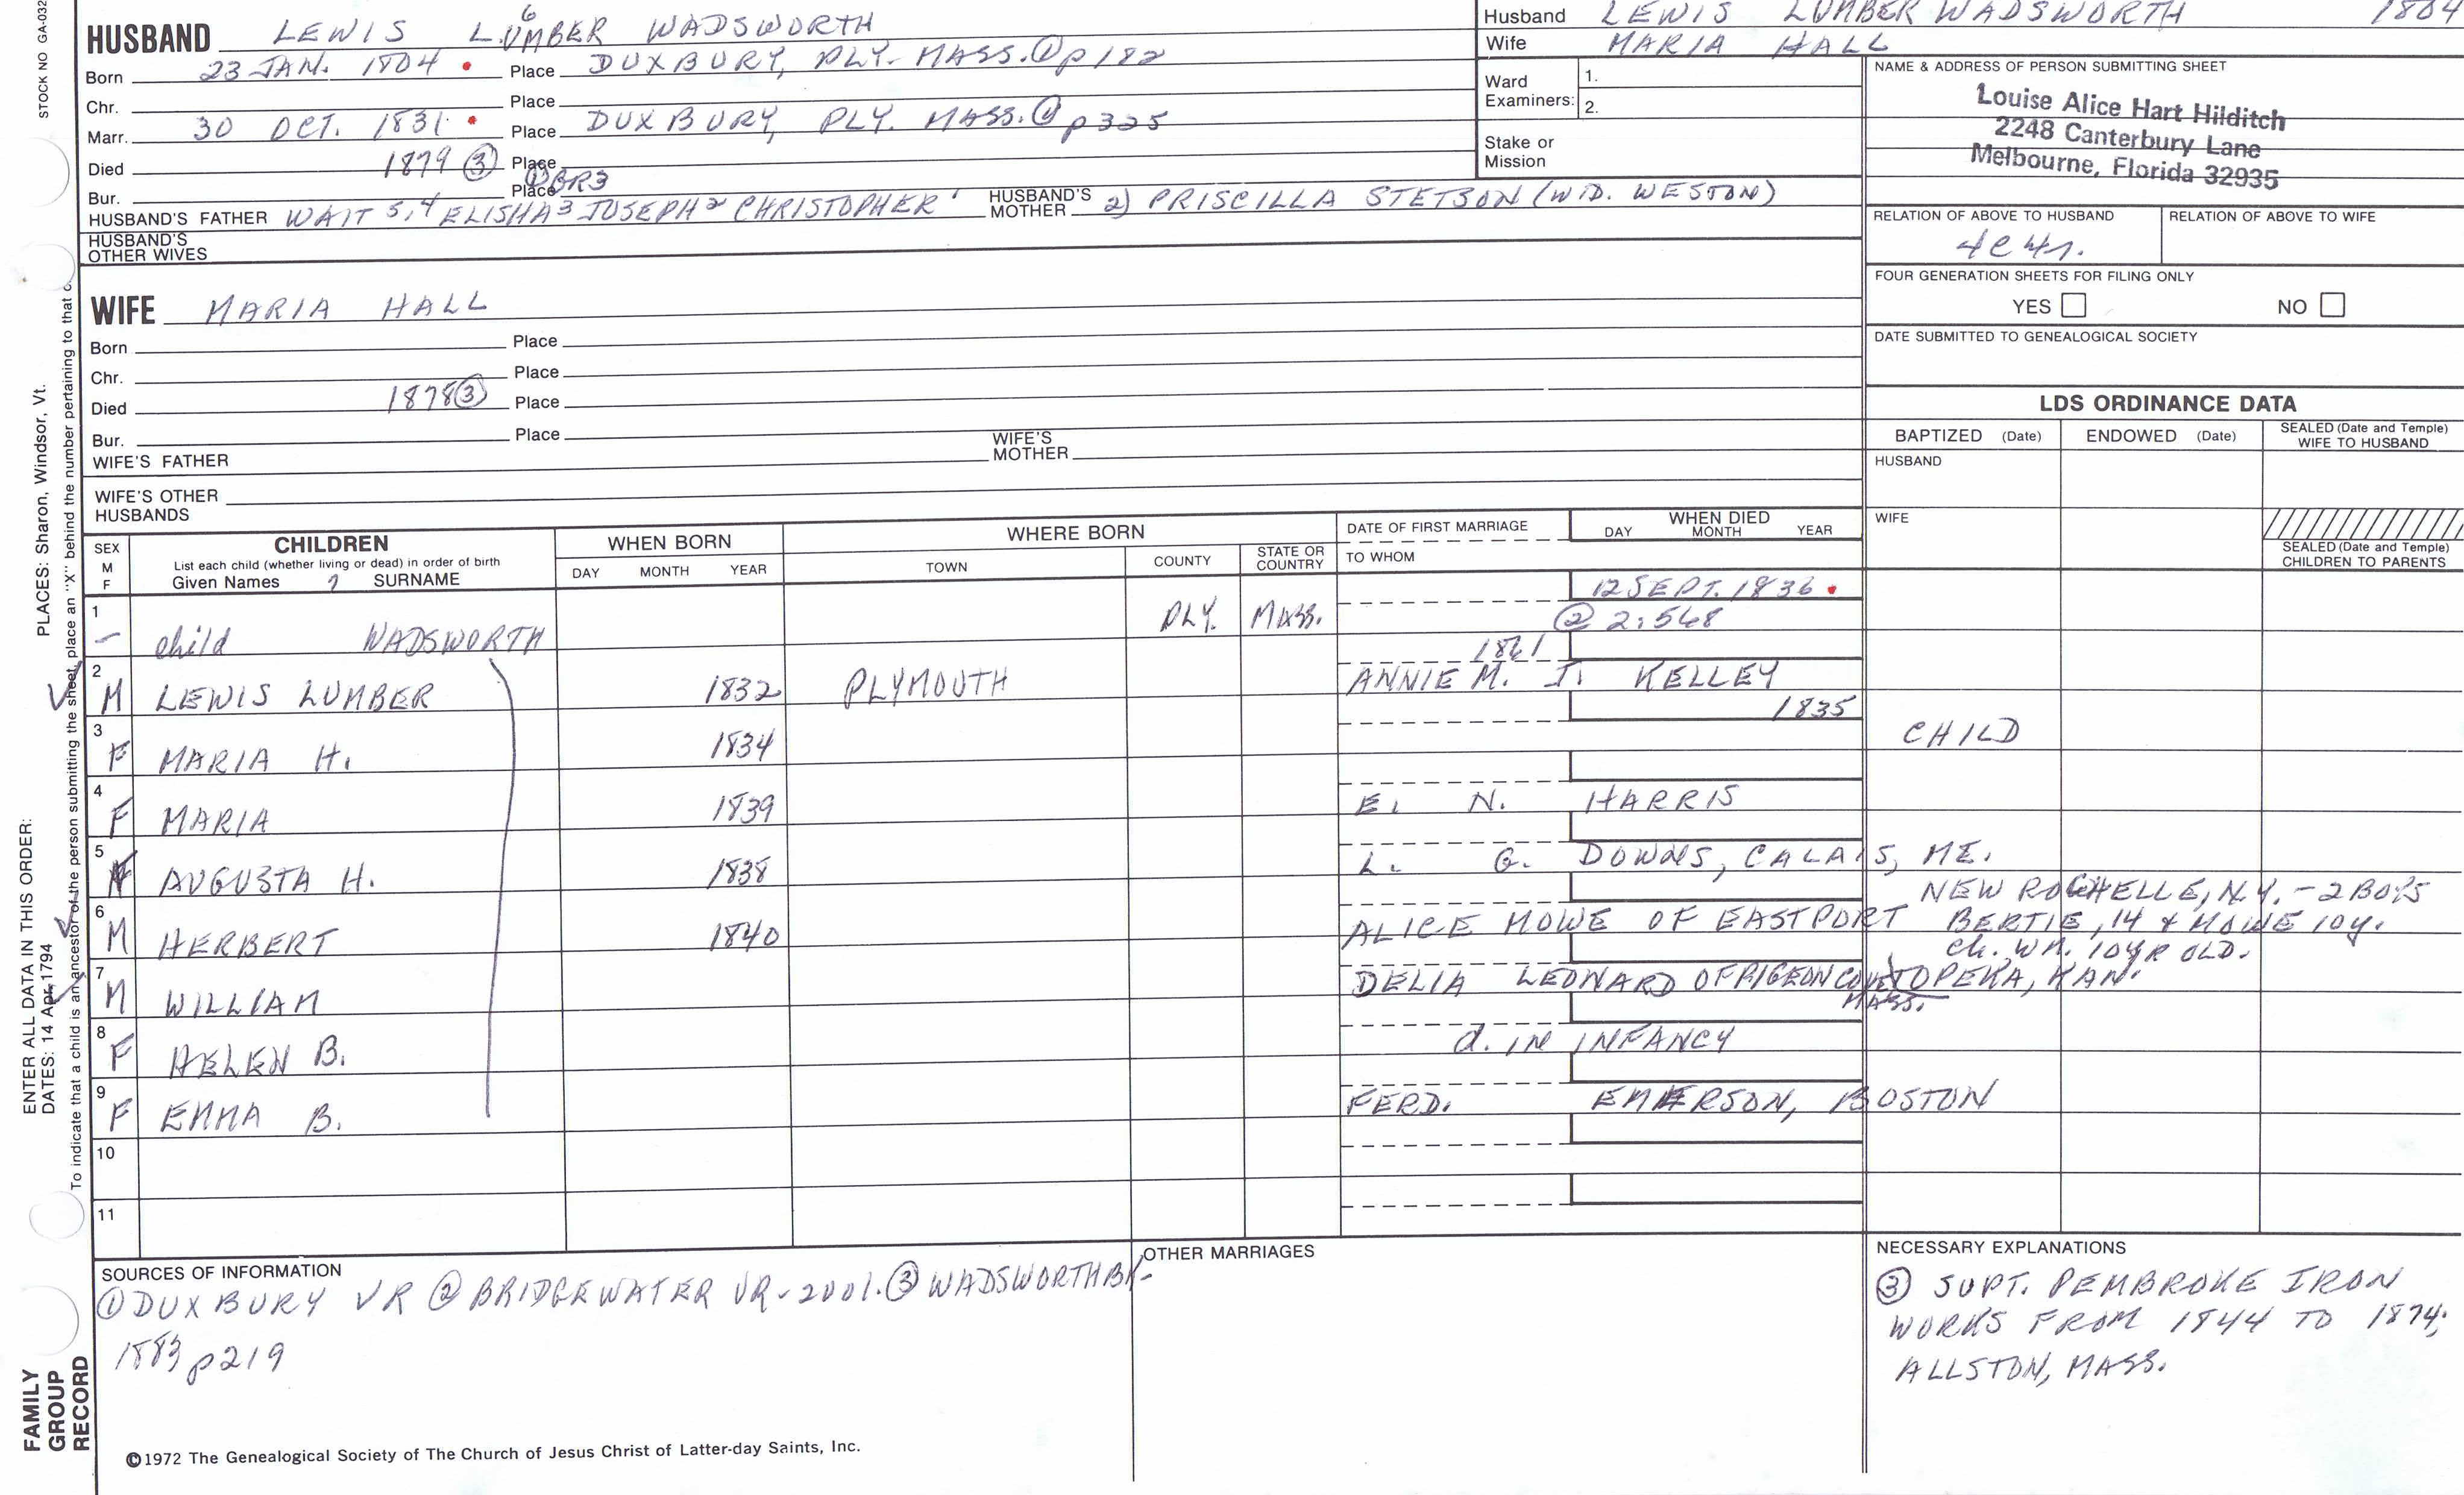 STOCK NO GA-032
HUSBAND LEWIS LUMBER 6 WADSWORTH
Born 23 JAN. 1804 • Place DUXBURY, PLY. MASS. ① p 182
Chr. Place
Marr. 30 OCT. 1831 • Place DUXBURY, PLY. MASS. ① p 325
Died 1879 ③ Place
① BR3
Bur. Place
HUSBAND'S FATHER WAIT 5,4 ELISHA 3 JOSEPH 2 CHRISTOPHER 1 HUSBAND'S MOTHER 2) PRISCILLA STETSON (WID. WESTON)
HUSBAND'S OTHER WIVES
Husband LEWIS LUMBER WADSWORTH 1804
Wife MARIA HALL
Ward Examiners: 1.
2.
Stake or Mission
NAME & ADDRESS OF PERSON SUBMITTING SHEET
Louise Alice Hart Hilditch
2248 Canterbury Lane
Melbourne, Florida 32935
RELATION OF ABOVE TO HUSBAND RELATION OF ABOVE TO WIFE
4c4r.
FOUR GENERATION SHEETS FOR FILING ONLY
YES NO
DATE SUBMITTED TO GENEALOGICAL SOCIETY
WIFE MARIA HALL
Born Place
Chr. Place
Died 1878 ③ Place
Bur. Place
WIFE'S FATHER WIFE'S MOTHER
WIFE'S OTHER HUSBANDS
LDS ORDINANCE DATA
BAPTIZED (Date) ENDOWED (Date) SEALED (Date and Temple) WIFE TO HUSBAND
HUSBAND
WIFE
SEALED (Date and Temple) CHILDREN TO PARENTS
SEX M F CHILDREN WHEN BORN WHERE BORN DATE OF FIRST MARRIAGE WHEN DIED
List each child (whether living or dead) in order of birth
Given Names ? SURNAME DAY MONTH YEAR TOWN COUNTY STATE OR COUNTRY TO WHOM DAY MONTH YEAR
1 – child WADSWORTH PLY. MASS. 12 SEPT. 1836 •
② 2:568
2 M LEWIS LUMBER 1832 PLYMOUTH 1861
ANNIE M. J. KELLEY
3 F MARIA H. 1834 1835 CHILD
4 F MARIA 1839 E. N. HARRIS
5 F AUGUSTA H. 1838 L. G. DOWNS, CALAIS, ME.
6 M HERBERT 1840 ALICE MOWE OF EASTPORT NEW ROCHELLE, N.Y. - 2 BOYS
BERTIE, 14 & MOWE 10y.
7 M WILLIAM DELIA LEONARD OF PIGEON COVE MASS. ch. WM. 10YR OLD.
TOPEKA, KAN.
8 F HELEN B. d. IN INFANCY
9 F EMMA B. FERD. EMERSON, BOSTON
10
11
SOURCES OF INFORMATION
① DUXBURY VR ② BRIDGEWATER VR - 2001. ③ WADSWORTH BK-
1883 p219
OTHER MARRIAGES
NECESSARY EXPLANATIONS
③ SUPT. PEMBROKE IRON
WORKS FROM 1844 TO 1874;
ALLSTON, MASS.
©1972 The Genealogical Society of The Church of Jesus Christ of Latter-day Saints, Inc.
ENTER ALL DATA IN THIS ORDER:
DATES: 14 Apr. 1794
PLACES: Sharon, Windsor, Vt.
To indicate that a child is an ancestor of the person submitting the sheet, place an "X" behind the number pertaining to that
FAMILY
GROUP
RECORD